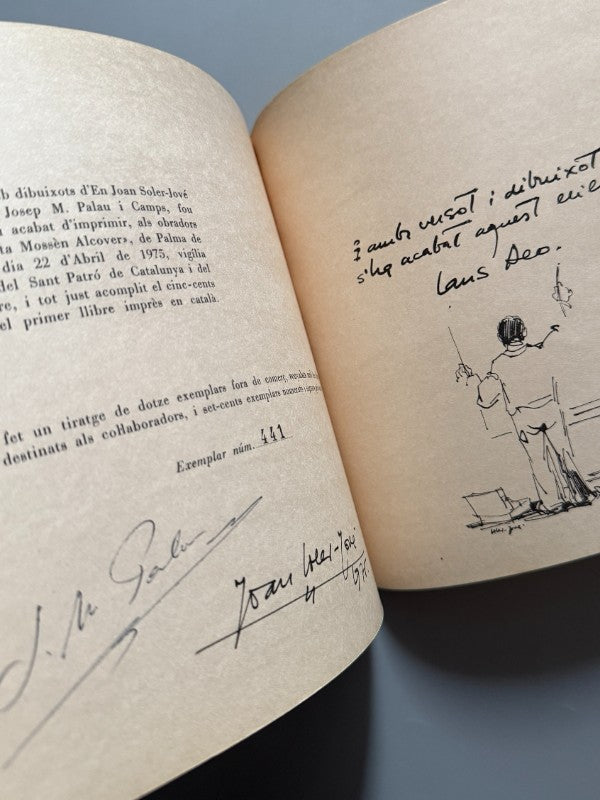 b dibuixots d'En Joan Soler-Jové
Josep M. Palau i Camps, fou
acabat d'imprimir, als obradors
ta Mossèn Alcover», de Palma de
dia 22 d'Abril de 1975, vigília
del Sant Patró de Catalunya i del
re, i tot just acomplit el cinc-cents
el primer llibre imprès en català.
fet un tiratge de dotze exemplars fora de comerç,
destinats als col·laboradors, i set-cents exemplars numerats i
Exemplar núm. 441
J. M. Palau
Joan Soler-Jové
i amb versot i dibuixot
s'ha acabat aquest
Laus Deo.